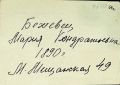 Бежевец
Мария Кондратьевна
1890 г.
М-Мещанская 49